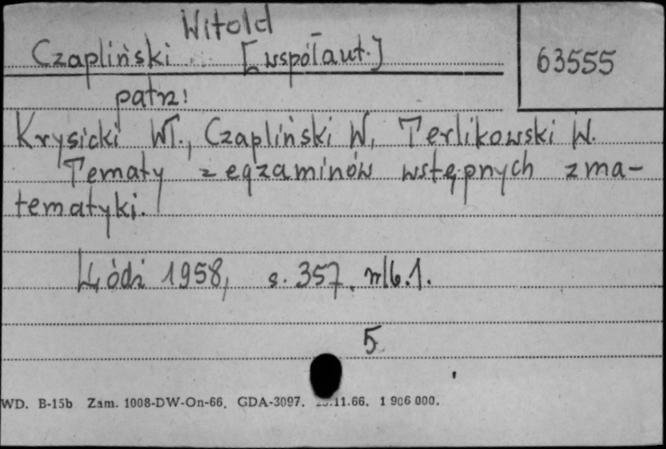 Witold
Czapliński [współaut.]
63555
patrz:
Krysicki Wł., Czapliński W, Terlikowski W.
Tematy z egzaminów wstępnych z ma-
tematyki.
Łódź 1958, s. 357, nlb. 1.
5
WD. B-15b Zam. 1008-DW-On-66. GDA-3097. .11.66. 1 906 000.